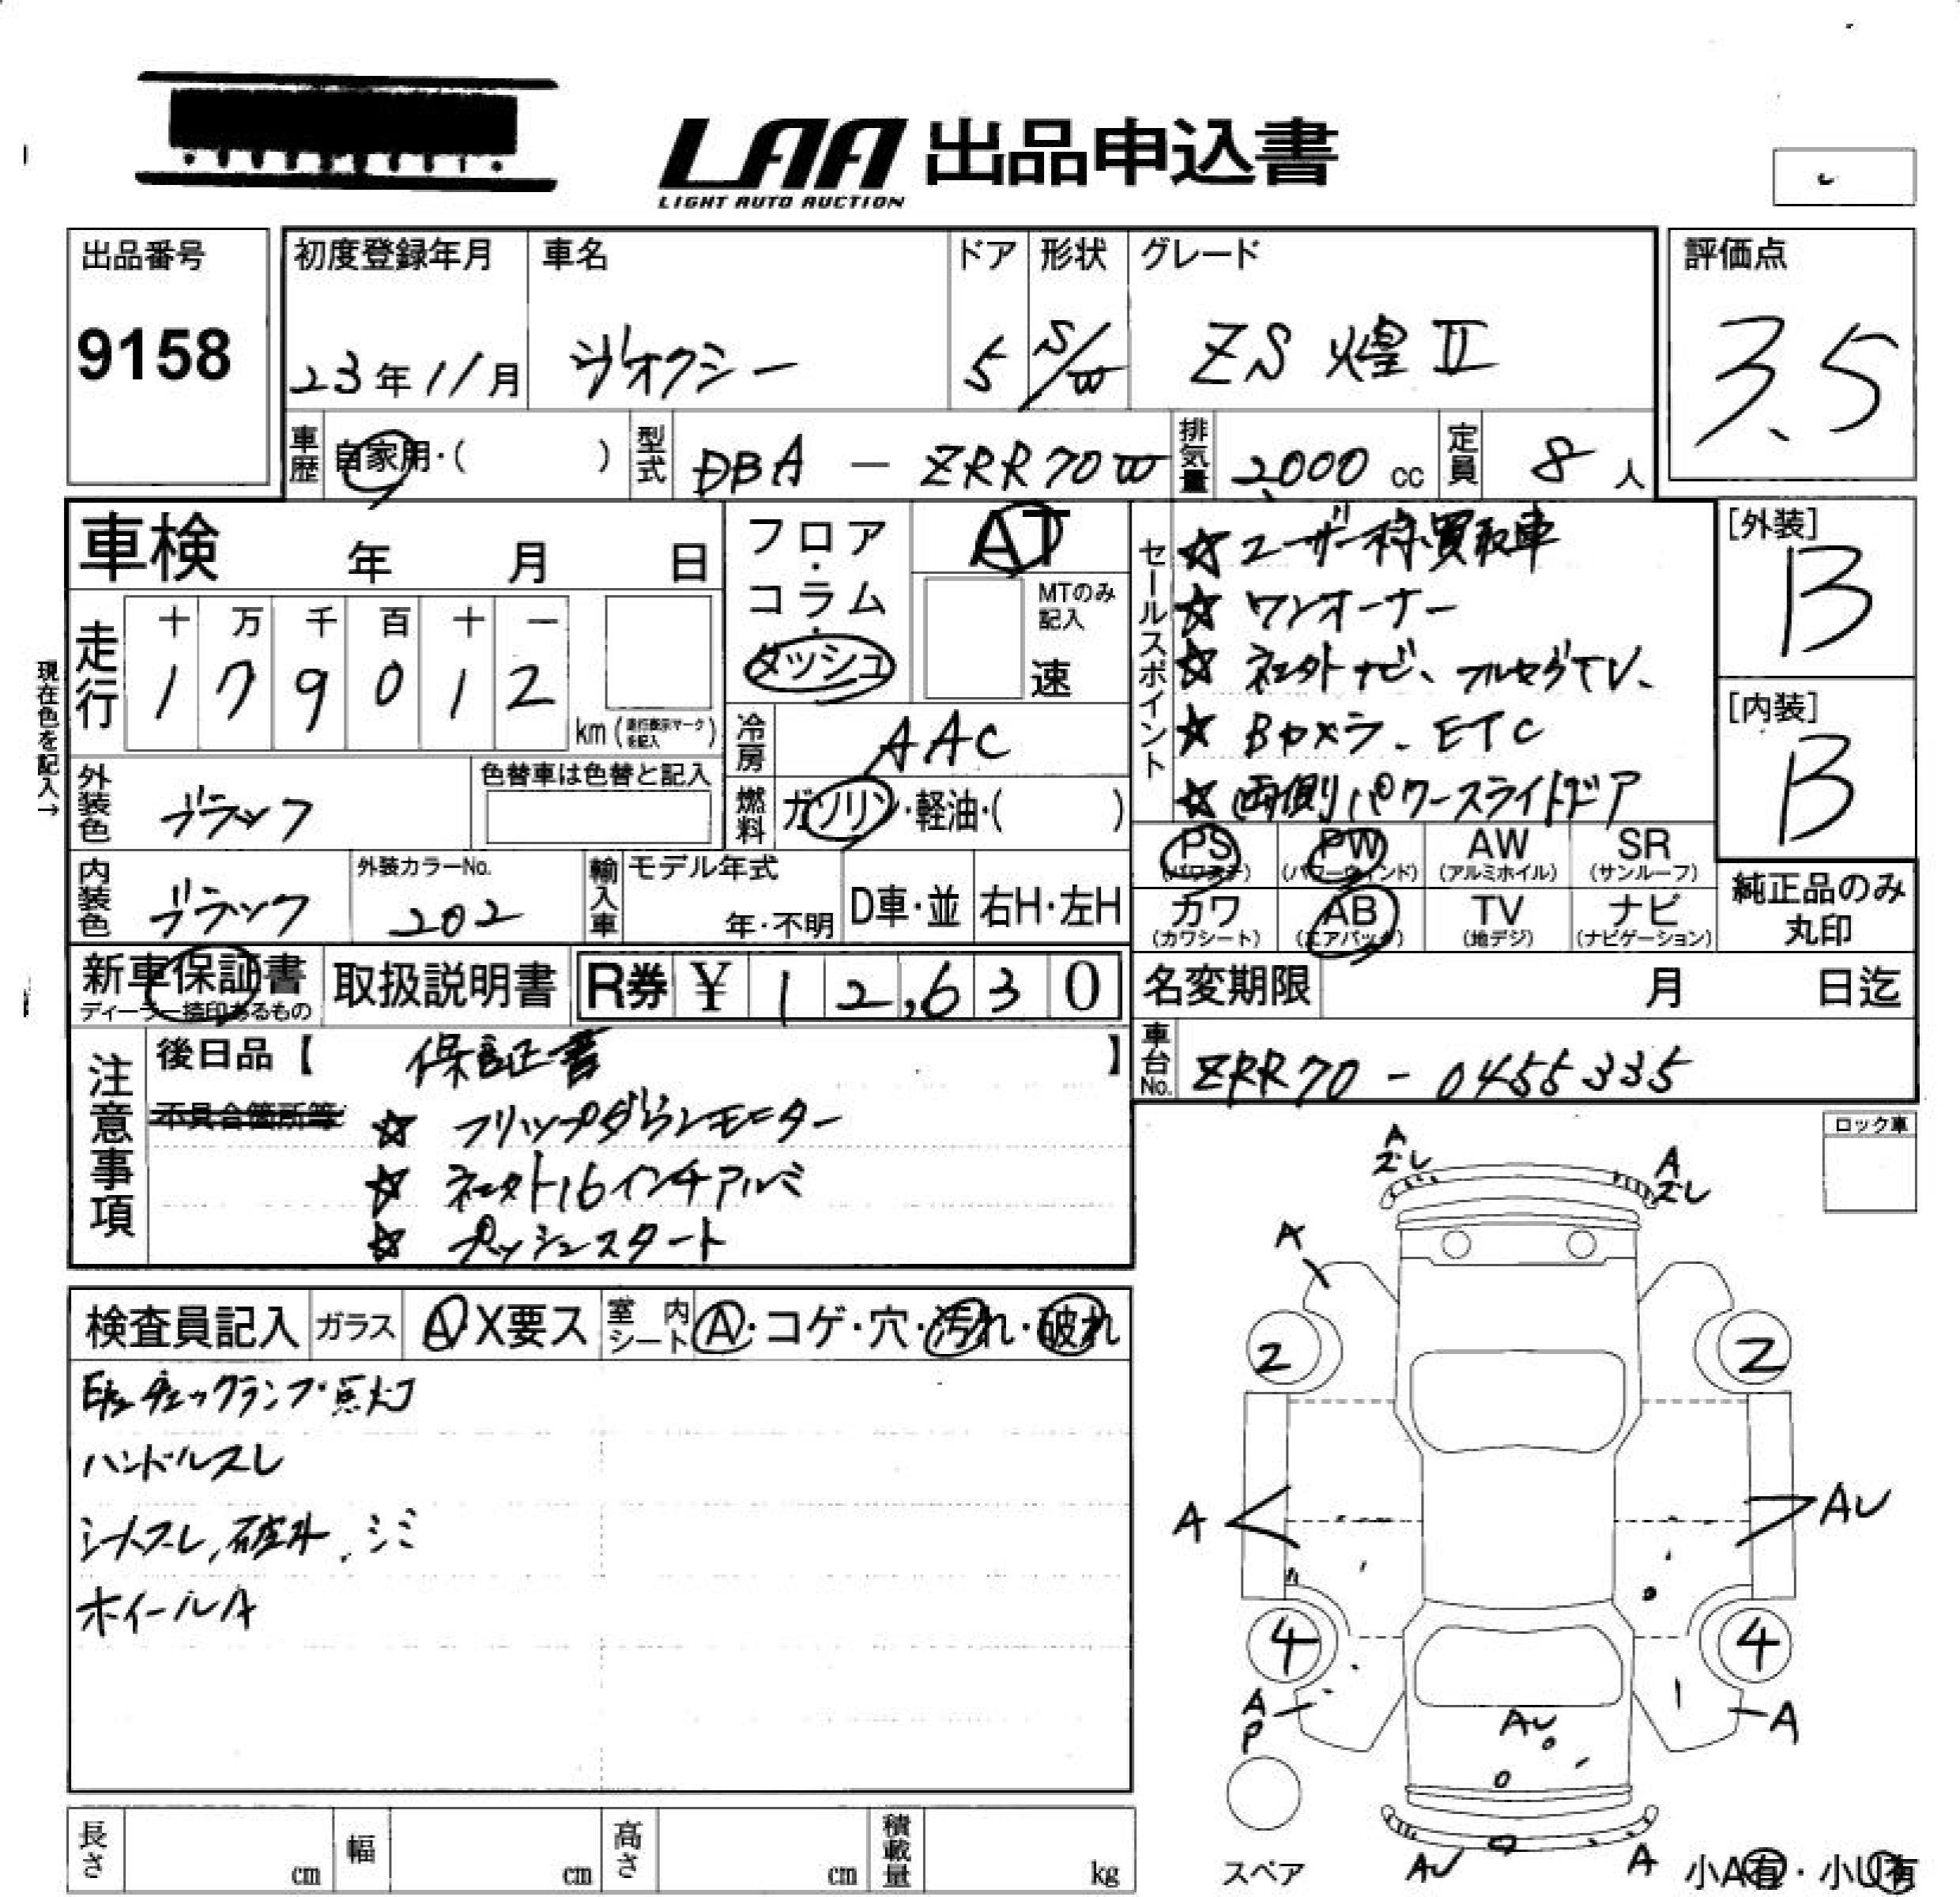 LAA 出品申込書
LIGHT AUTO AUCTION
出品番号
9158
初度登録年月
23年11月
車名
ヴォクシー
ドア
5
形状
S/W
グレード
ZS 煌 II
評価点
3.5
車歴
自家用・( )
型式
DBA - ZRR70W
排気量
2,000 cc
定員
8 人
車検 年 月 日
フロア・コラム・ダッシュ
AT
MTのみ記入
速
セールスポイント
☆ユーザー様買取車
☆ワンオーナー
☆ ナビ、フルセグTV、
☆Bカメラ、ETC
☆両側パワースライドドア
[外装]
B
[内装]
B
現在色を記入→
走行
十 万 千 百 十 一
1 7 9 0 1 2
km (走行表示マークを記入)
冷房
AAC
外装色
ブラック
色替車は色替と記入
燃料
ガソリン・軽油・( )
PS
(パワステ)
PW
(パワーウィンド)
AW
(アルミホイル)
SR
(サンルーフ)
内装色
ブラック
外装カラーNo.
202
輸入車
モデル年式
年・不明
D車・並
右H・左H
カワ
(カワシート)
AB
(エアバック)
TV
(地デジ)
ナビ
(ナビゲーション)
純正品のみ
丸印
新車保証書
ディーラー捺印あるもの
取扱説明書
R券 ¥ 12,630
名変期限 月 日迄
注意事項
後日品【 保証書 】
車台No.
ZRR70 - 0455335
不具合箇所等
☆ フリップダウンモニター
☆ 16インチアルミ
☆ プッシュスタート
ロック車
A
スレ
A
スレ
A
2
2
A
AU
4
4
A
P
A
AU
AU
A
スペア
小A有・小U有
検査員記入
ガラス
A・X要ス
室内シート
A・コゲ・穴・汚れ・破れ
チェックランプ点灯
ハンドルスレ
シートスレ、破れ、シミ
ホイールA
長さ cm
幅 cm
高さ cm
積載量 kg